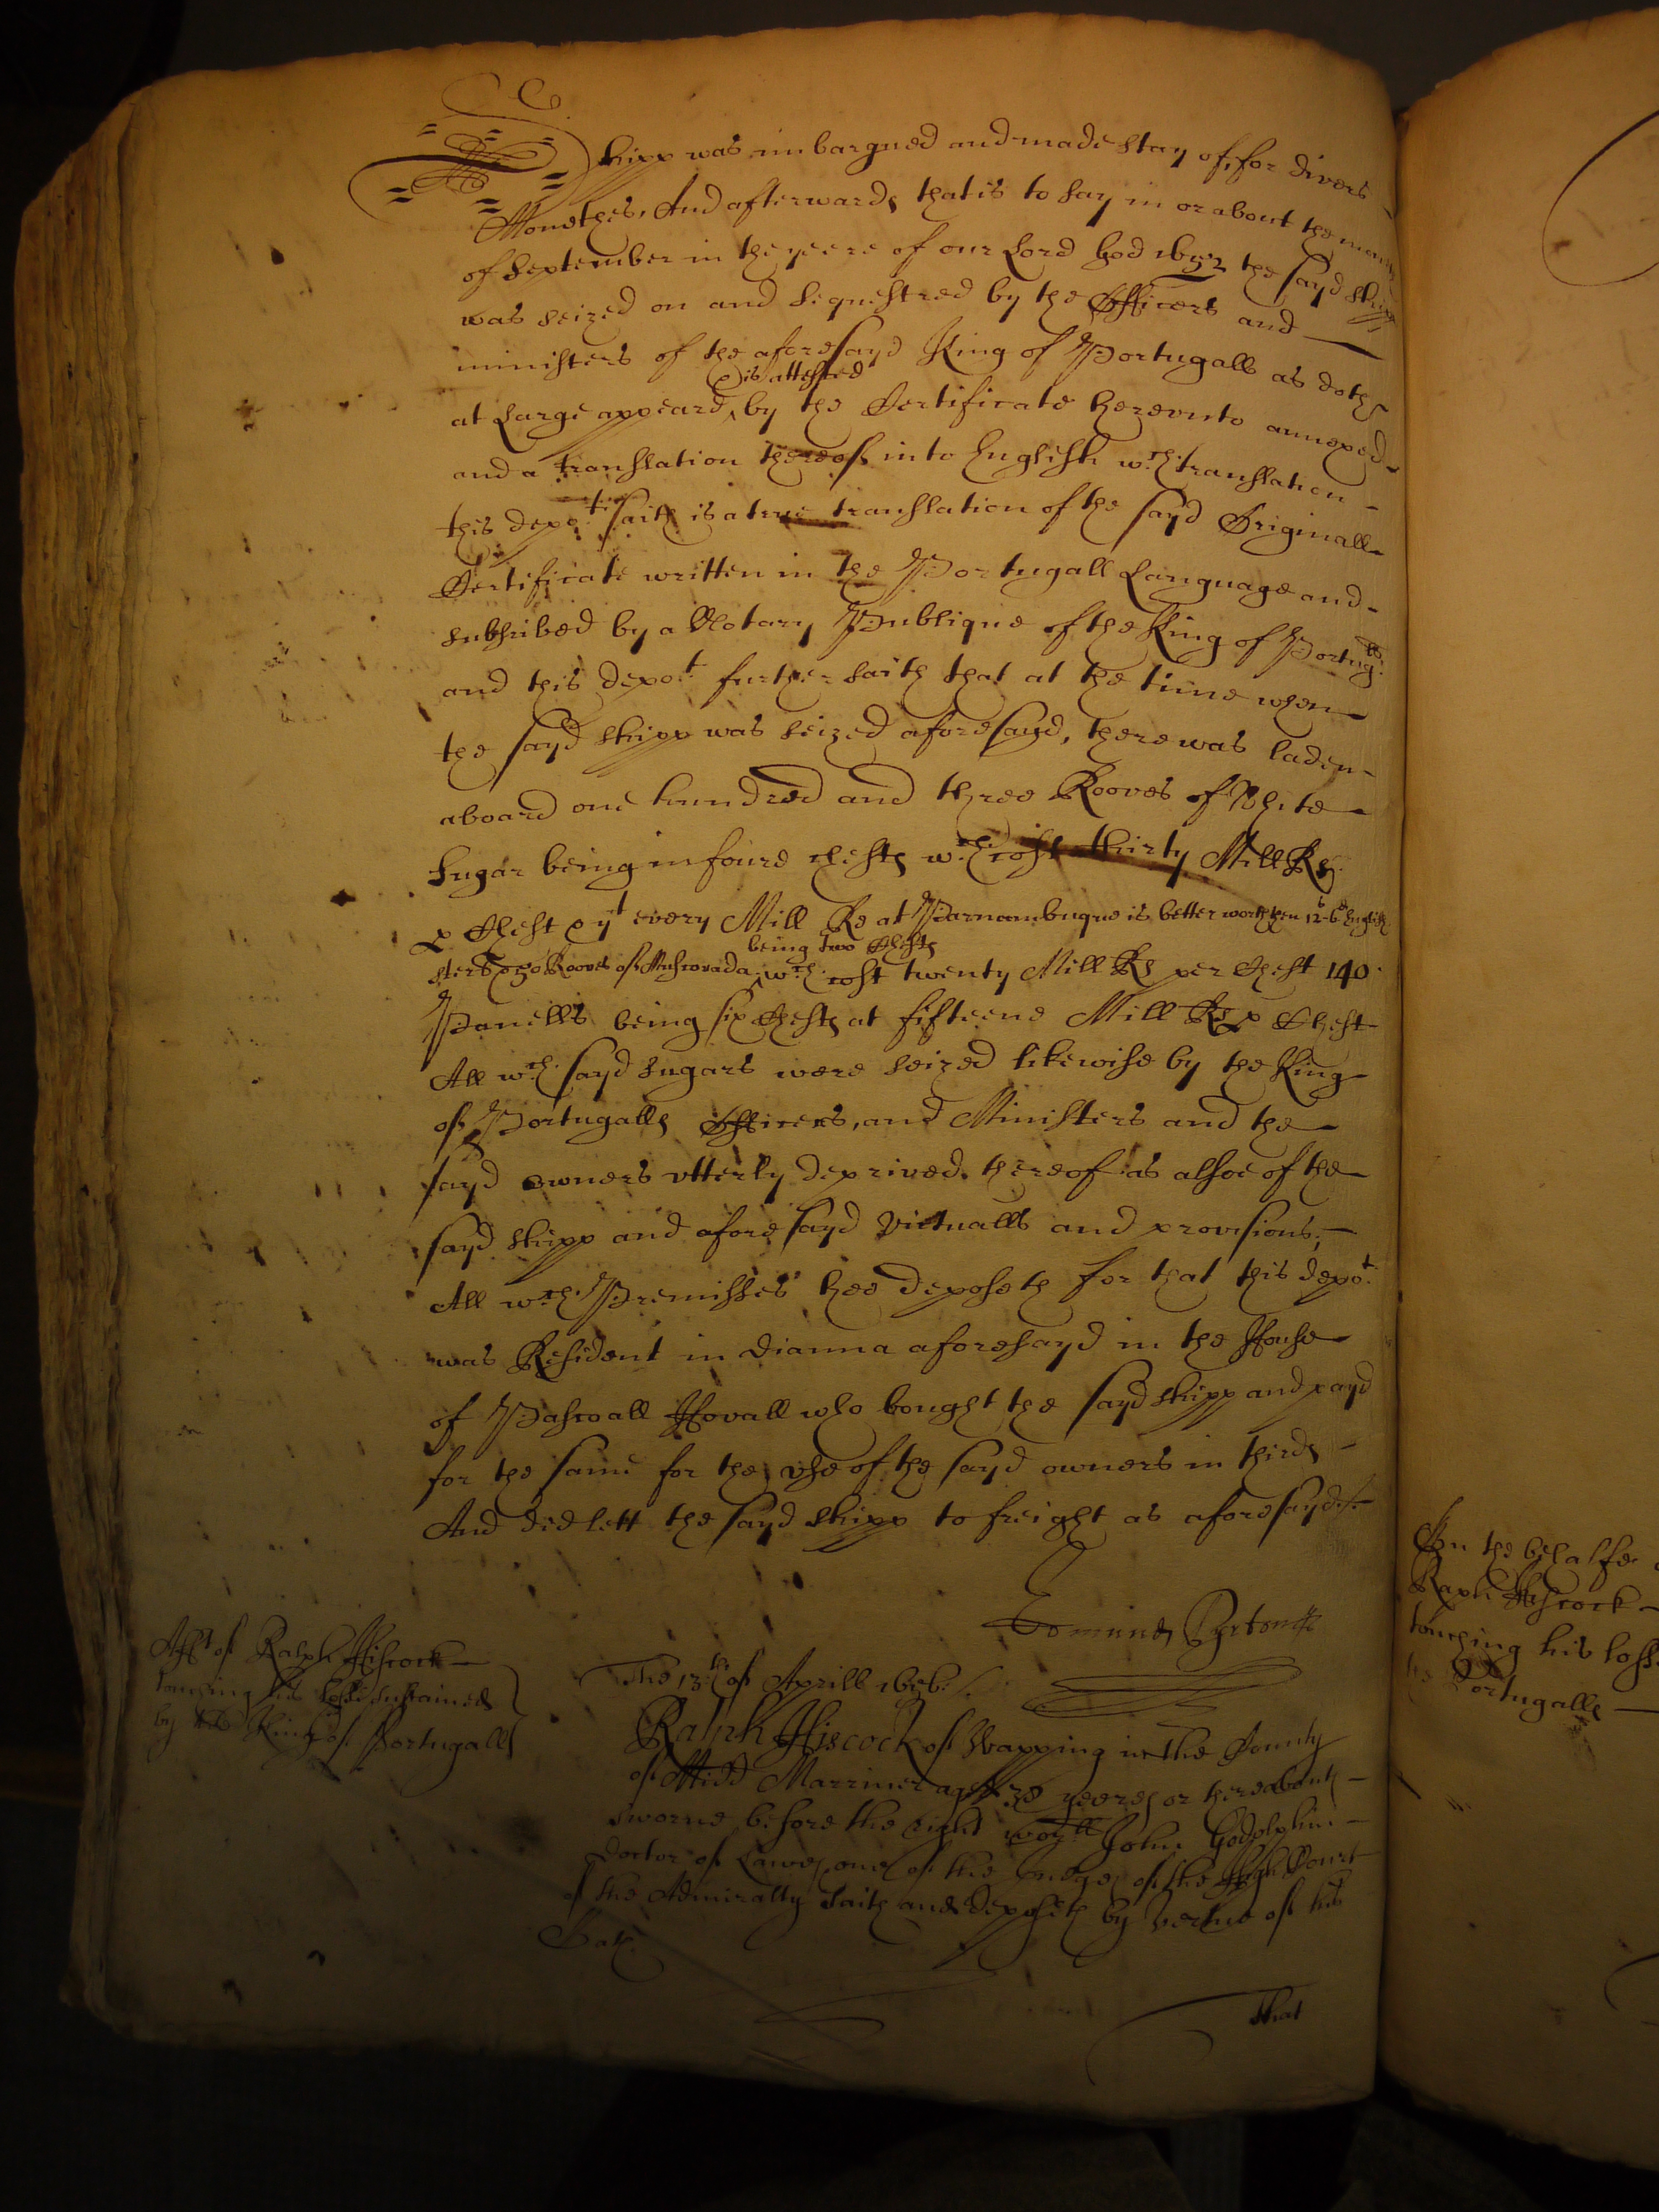 shipp was imbargued and made stay of, for divers
Monethes, And afterwards that is to say in or about the moneth
of September in the yeere of our Lord God 1652 the sayd shipp
was seized on and sequestred by the Officers and
ministers of the aforesayd King of Portugalls as doth
at Large appeare, by the Certificate herevnto annexed
is attested
and a translation thereof into English wch. translation
this depot. saith is a true translation of the sayd Originall
Certificate written in the Portugall Language and
subscribed by a Notary Publique of the King of Portug:lls
and this depot. further saith that at the time when
the sayd shipp was seized aforesayd, there was laden
aboard one hundred and three Rooves of White
Sugar being in foure chests wch. cost thirty Mill Rs.
p Chest & yt every Mill Re at Parnambuque is better worth then 12s-6d English
ster & 50 Rooves of Muscovada, wch. cost twenty Mill Rs per Chest 140
being two Chests
Panells being six Chests at fifteene Mill Rs p Chest
All wch. sayd sugars were seized likewise by the King
of Portugalls Officers, and Ministers and the
sayd owners vtterly deprived thereof as alsoe of the
sayd shipp and aforesayd victualls and provisions,
All wch. Premisses hee deposeth for that this depot.
was Resident in Vianna aforesayd in the House
of Pascoall Hovall who bought the sayd shipp and payd
for the same for the vse of the sayd owners in thirds
And did lett the sayd shipp to freight as aforesayd./.
The 13th. of Aprill 1656./.
Afft of Ralph Hiscock
touching his losse sustained
by the King of Portugalls
Ralph Hiscock of Wapping in the County
of Midd Marriner aged yeeres or thereabouts
sworne before the right worll John Godolphin
Doctor of Lawes one of the Judges of the High Court
of the Admiralty saith and deposeth by vertue of his
Oath.
That
On the behalfe
Raph Hiscock
touching his losse
Portugalls